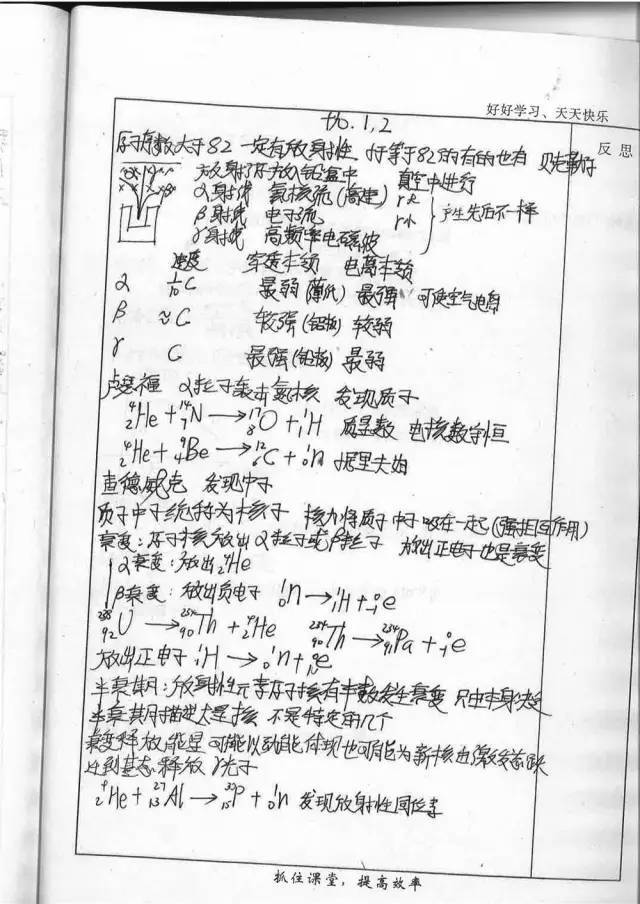 好好学习、天天快乐
反思
P6.1,2
原子序数大于82一定有放射性 小于等于82的有的也有 贝克勒尔
放射源放入铅盒中 真空中进行
α射线 氦核流(高速) r大
β射线 电子流 r小
γ射线 高频率电磁波
产生先后不一样
速度 穿透本领 电离本领
α 1/10 C 最弱(薄纸) 最强 可使空气电离
β ≈C 较强(铝板) 较弱
γ C 最强(铅板) 最弱
卢瑟福 α粒子轰击氮核 发现质子
⁴₂He + ¹⁴₇N → ¹⁷₈O + ¹₁H 质量数 电核数守恒
⁴₂He + ⁹₄Be → ¹²₆C + ¹₀n 居里夫妇
查德威克 发现中子
质子中子统称为核子 核力将质子中子吸在一起(强相互作用)
衰变:原子核放出α粒子或β粒子 放出正电子也是衰变
α衰变:放出⁴₂He
β衰变:放出负电子 ¹₀n → ¹₁H + ⁰₋₁e
²³⁸₉₂U → ²³⁴₉₀Th + ⁴₂He ²³⁴₉₀Th → ²³⁴₉₁Pa + ⁰₋₁e
放出正电子 ¹₁H → ¹₀n + ⁰₁e
半衰期:放射性元素原子核有半数发生衰变 只由本身决定
半衰期描述大量核 不是特定几个
衰变释放能量可能以动能体现也可能为新核由激发态跃
迁到基态释放γ光子
⁴₂He + ²⁷₁₃Al → ³⁰₁₅P + ¹₀n 发现放射性同位素
抓住课堂,提高效率